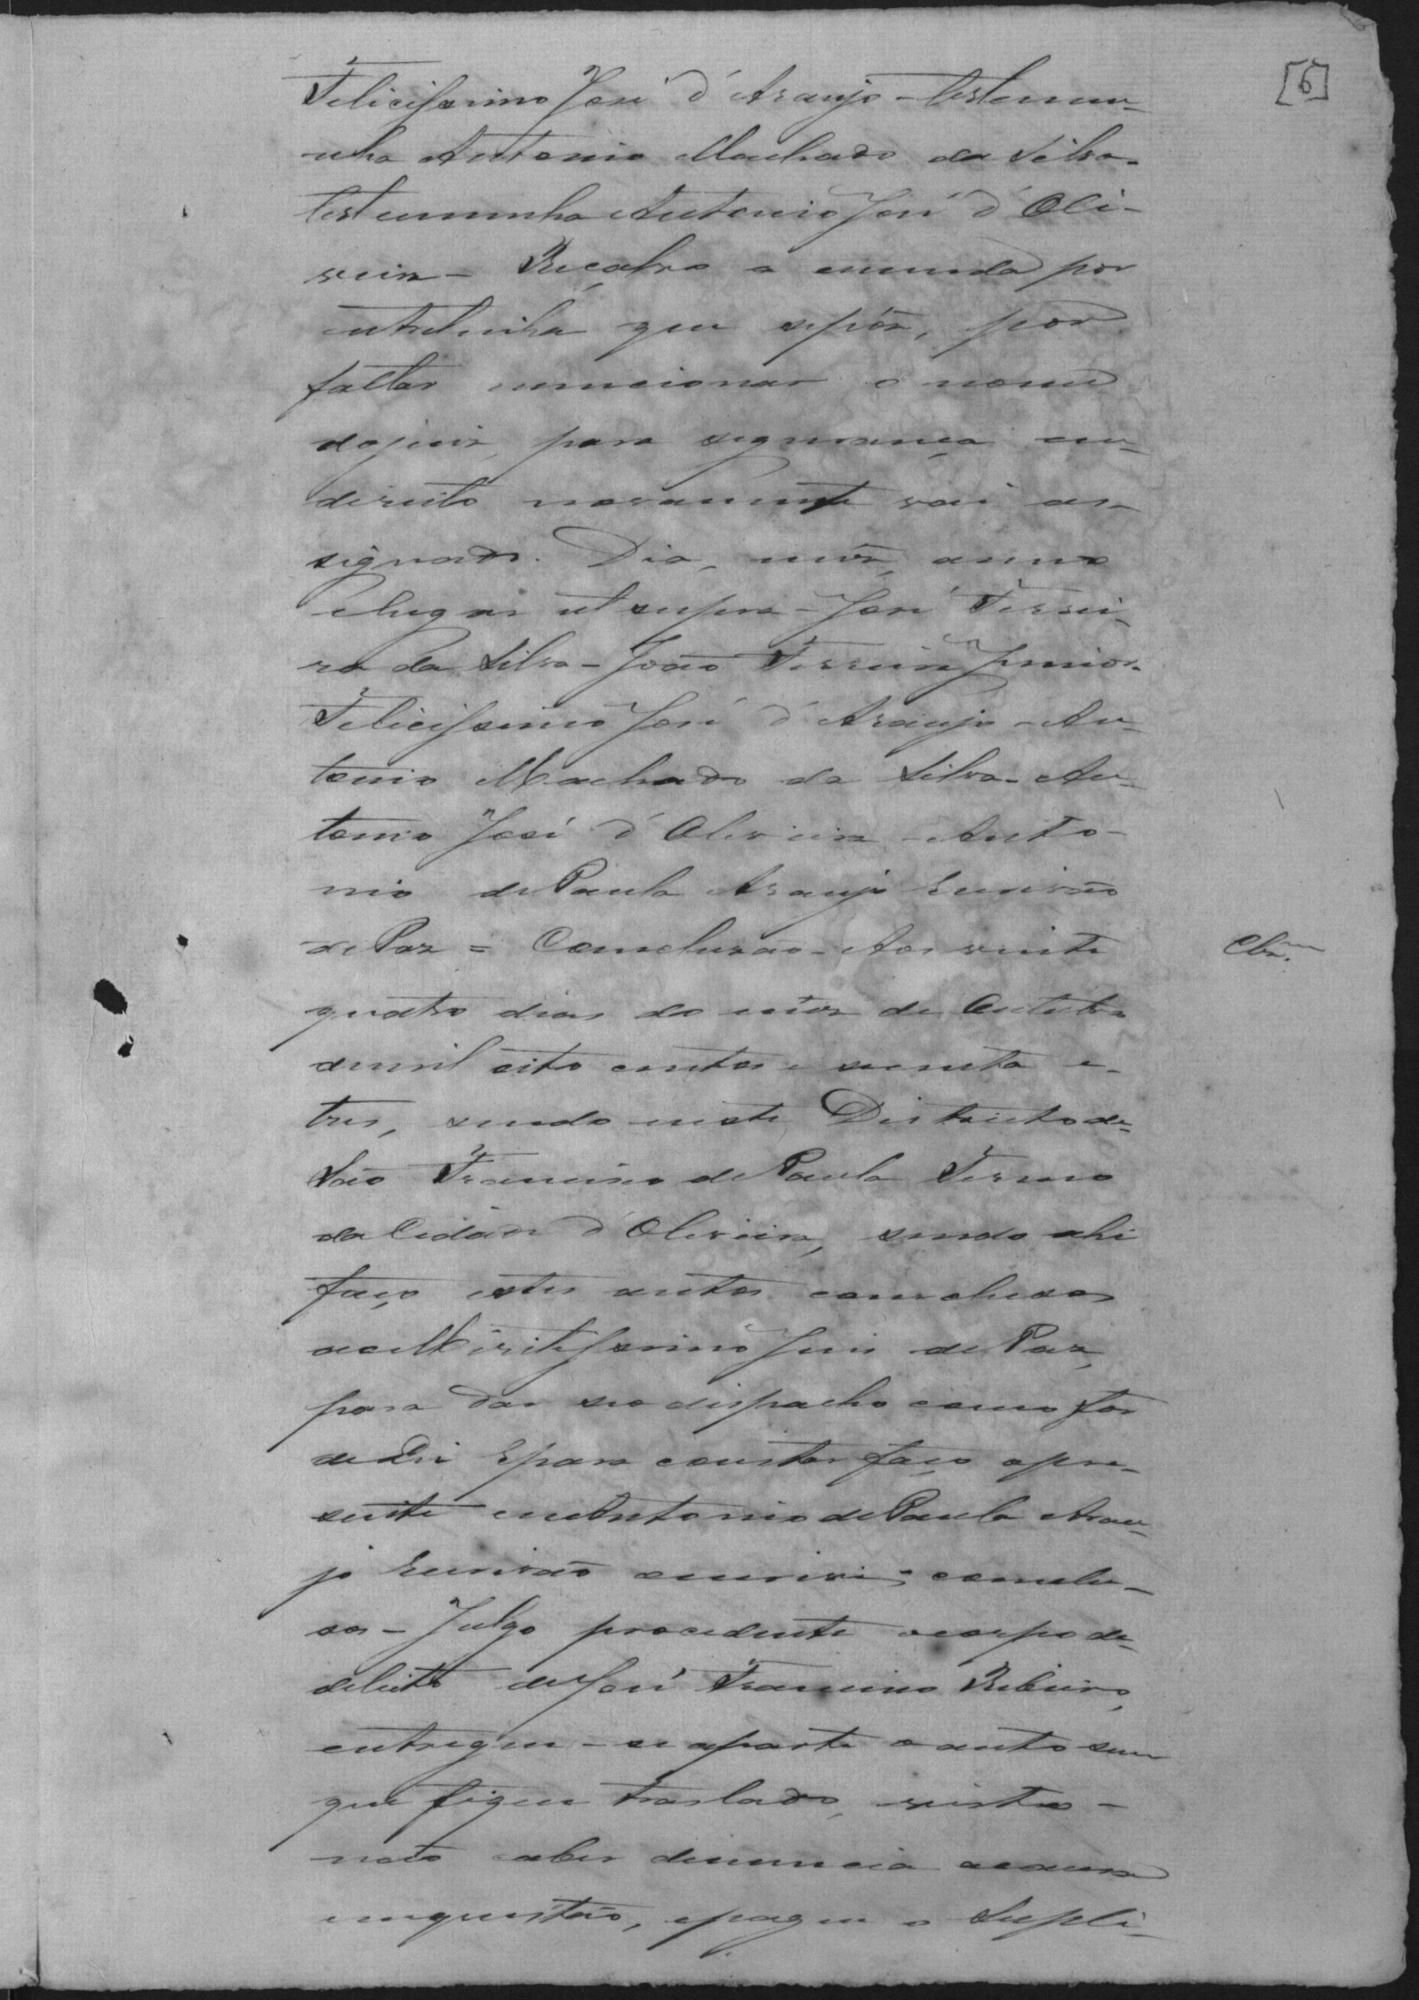 [6]
Felicissimo José d'Araujo - testemu-
nha Antonio Machado da Silva -
testemunha Antonio José d'Oli-
veira - Reçalvo a emenda por
entrelinha que se pôz, por
faltar mencionar o nome
do juiz, para segurança em
direito novamente vai as-
signado. Dia, mêz, anno
e lugar ut supra - José Ferrei-
ra da Silva - João Ferreira Junior -
Felicissimo José d'Araujo - An-
tonio Machado da Silva - An-
tonio José d'Oliveira - Anto-
nio de Paula Araujo Escrivão
de Paz = Conclusão - Aos vinte
Clzm.
quatro dias do mêz de Outubro
de mil oito centos e secenta e
tres, sendo neste Districto de
São Francisco de Paula Termo
da Cidade d'Oliveira, sendo ahi
faço estes autos conclusos
ao Miritissimo Juis de Paz,
para dar seo dispacho como for
de Dir. E para constar faço o pre-
sente eu Antonio de Paula Arau-
jo Escrivão escrivi - conclu-
sos - Julgo procedente o corpo de
delicto de José Francisco Ribeiro,
entregue-se a parte o auto sem
que fique traslado, visto
não caber denuncia a causa
em questão, e pague o Supli-